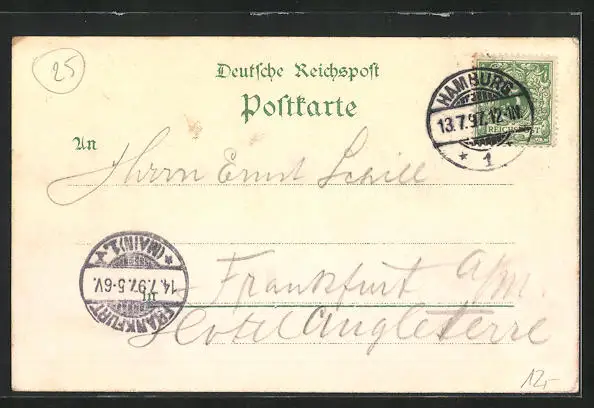 25
Deutsche Reichspost
Postkarte
HAMBURG
13.7.97.12-1N.
* 1
REICHSPOST
An
Herrn Ernst Schill
*(MAIN)1.*
14.7.97.5-6V.
FRANKFURT
in Frankfurt a/M.
Hotel Angleterre
12,-